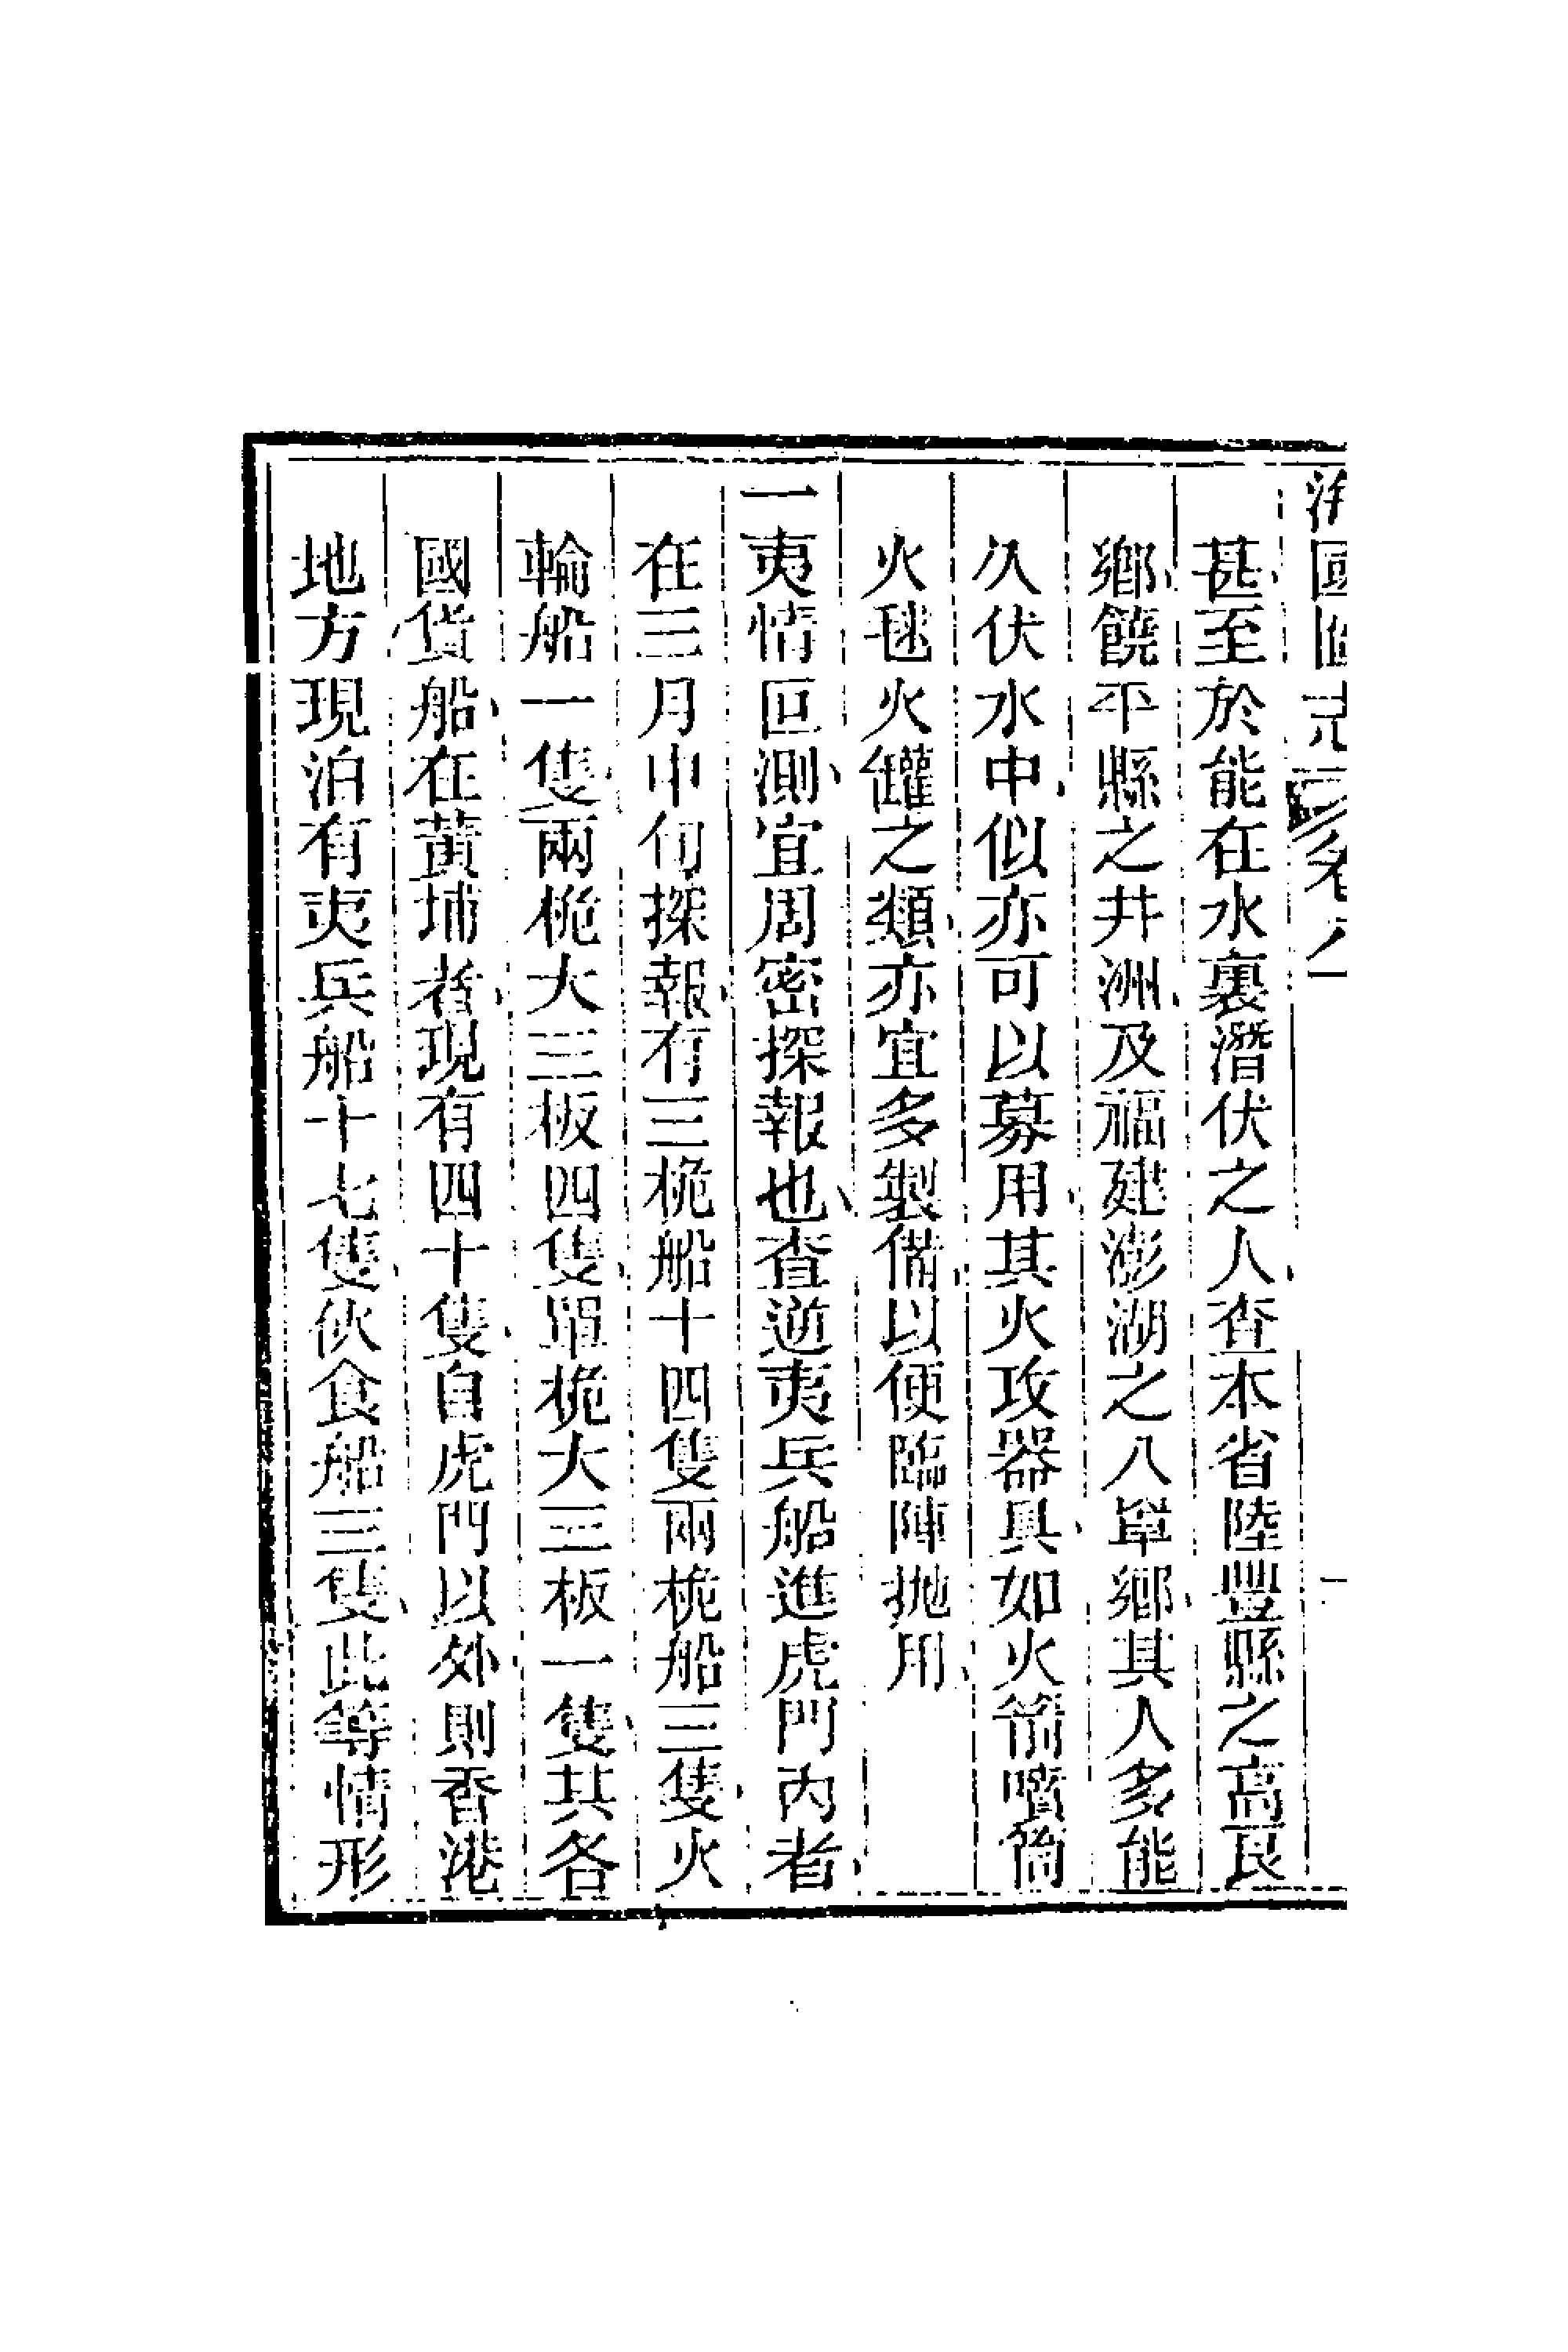 海國圖志 卷八
甚至於能在水裏潛伏之人查本省陸豐縣之高良
鄉饒平縣之井洲及福建澎湖之八罩鄉其人多能
久伏水中似亦可以募用其火攻器具如火箭噴筒
火毬火罐之類亦宜多製備以便臨陣拋用
一夷情叵測宜周密探報也查逆夷兵船進虎門內者
在三月中旬探報有三桅船十四隻兩桅船三隻火
輪船一隻兩桅大三板四隻單桅大三板一隻其各
國貨船在黃埔者現有四十隻自虎門以外則香港
地方現泊有夷兵船十七隻伙食船三隻此等情形